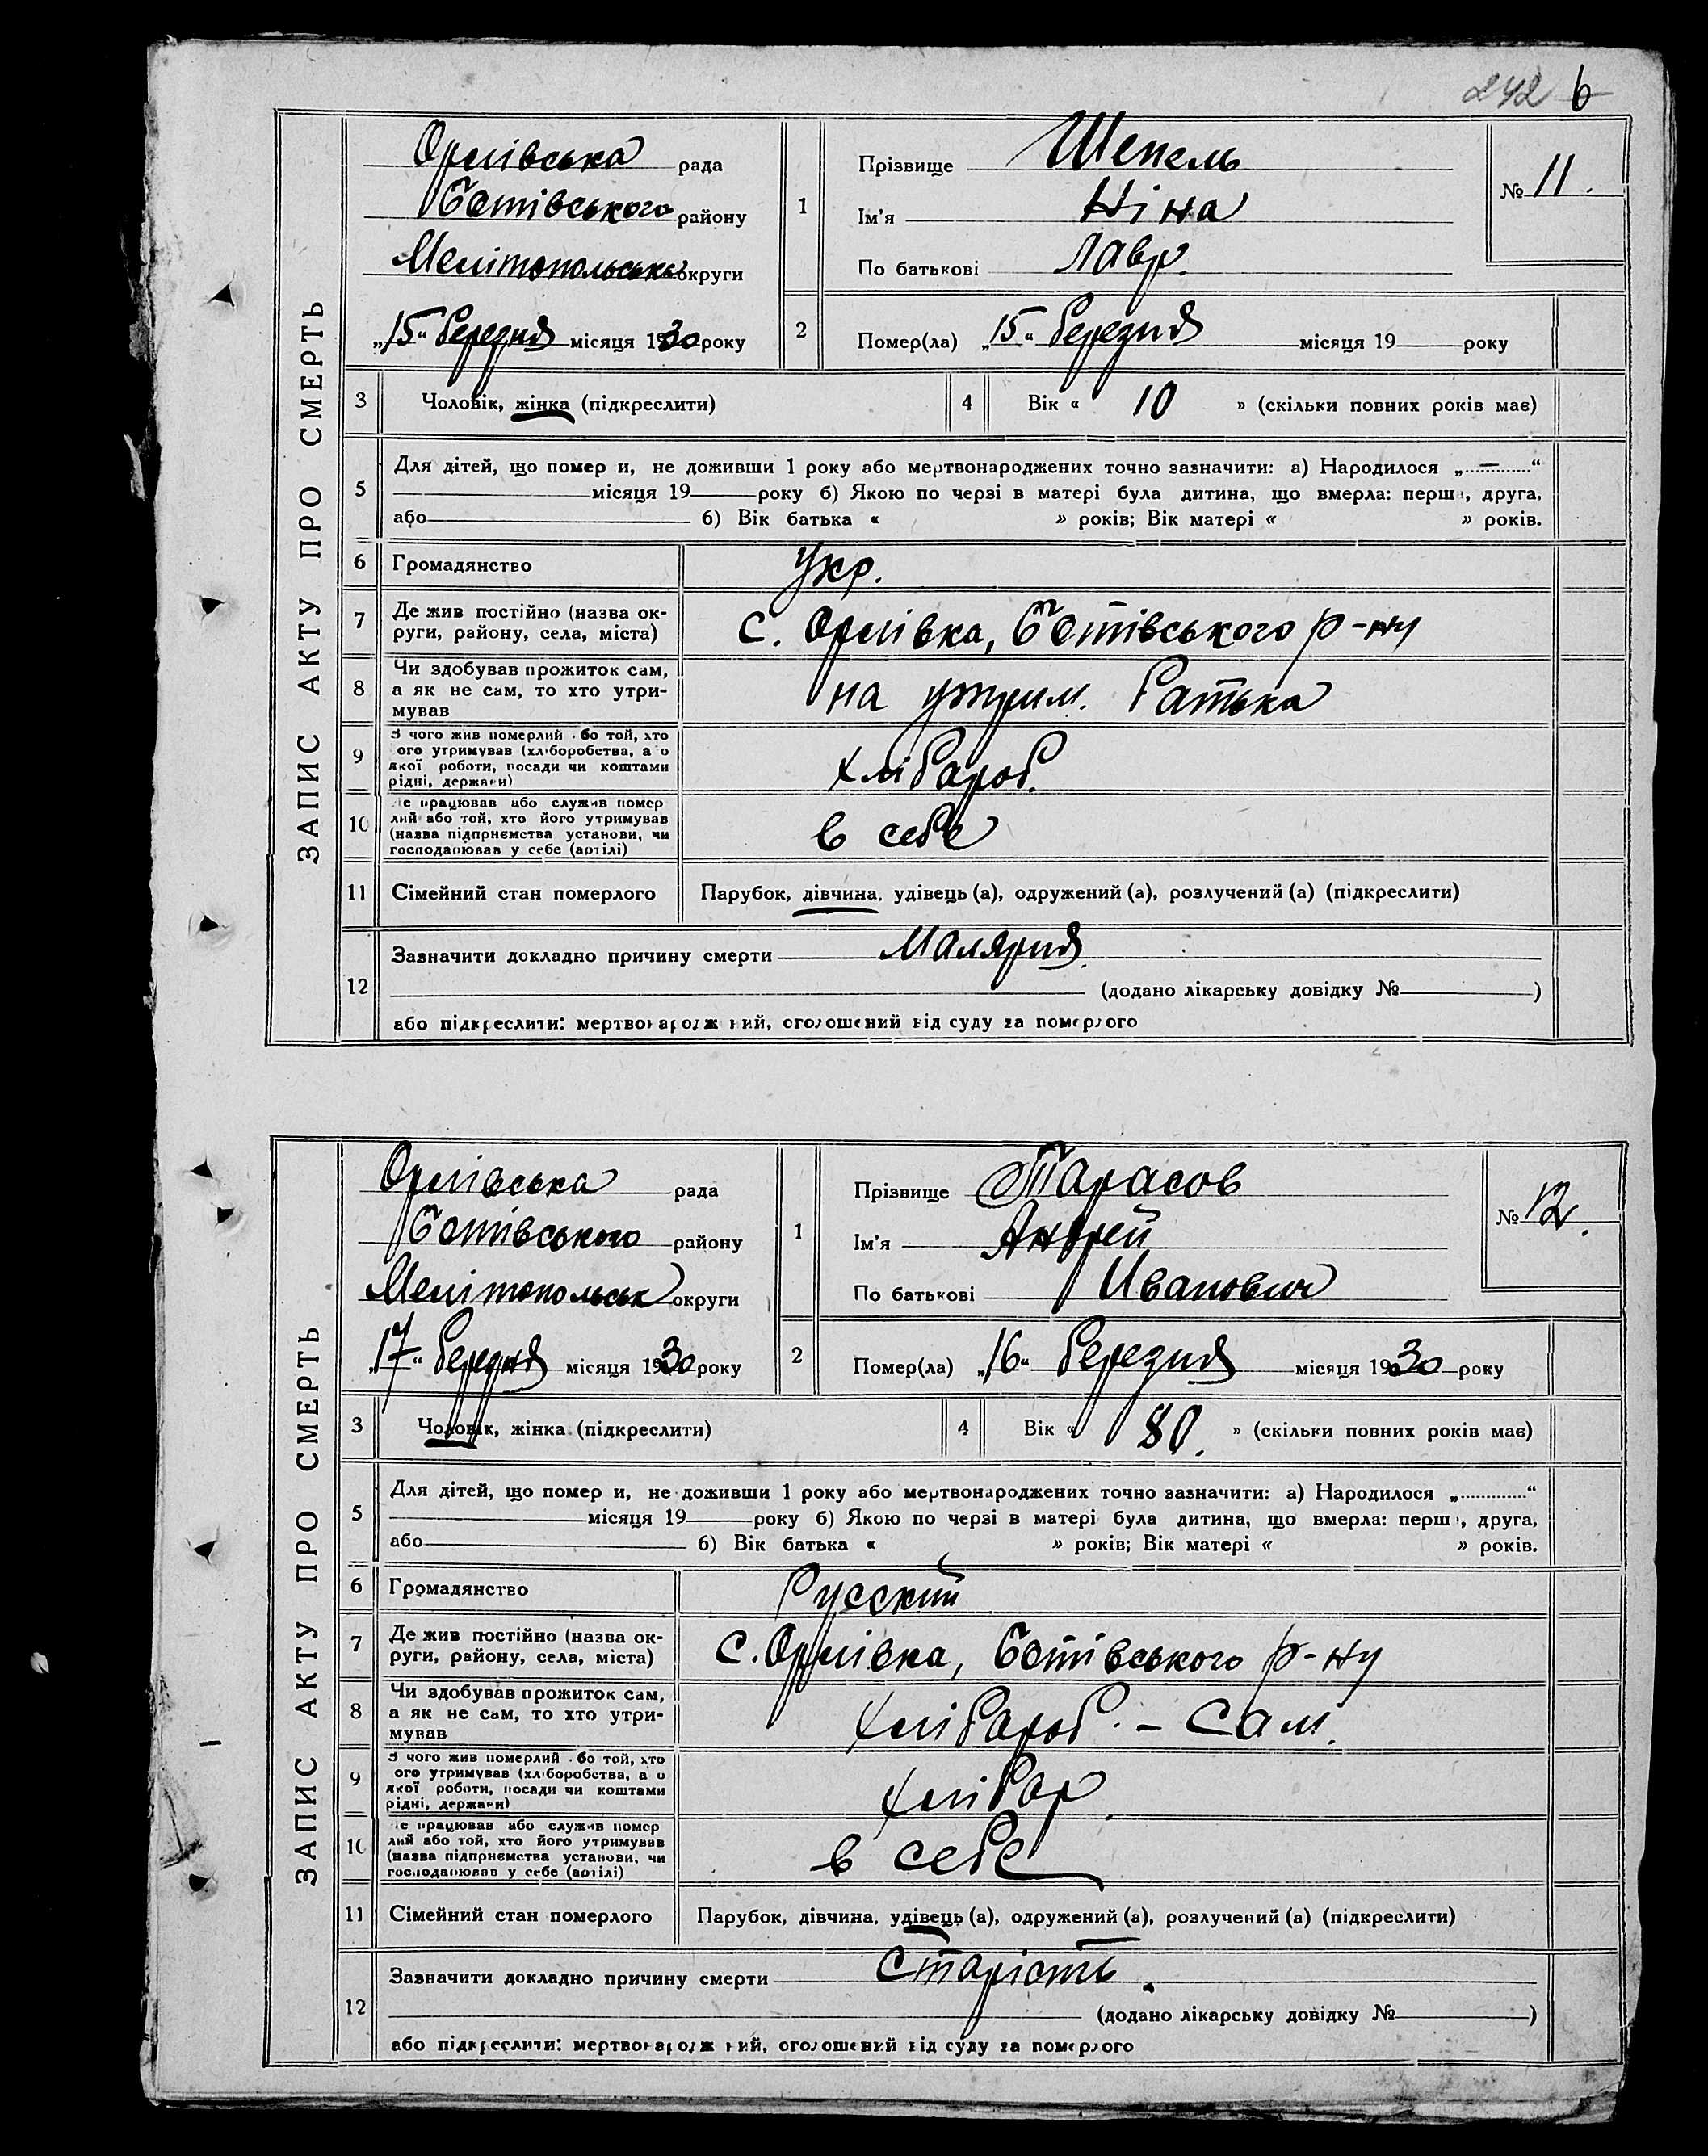 242 6
ЗАПИС АКТУ ПРО СМЕРТЬ
Орлівська рада
Ботівського району
Мелітопольської округи
„15“ березня місяця 1930 року
1
Прізвище Шепель
Ім'я Ніна
По батькові Лавр.
№ 11.
2
Помер(ла) „15“ березня місяця 19 року
3 Чоловік, жінка (підкреслити)
4 Вік « 10 » (скільки повних років має)
5
Для дітей, що помер и, не доживши 1 року або мертвонароджених точно зазначити: а) Народилося „ — “
місяця 19 року б) Якою по черзі в матері була дитина, що вмерла: перша, друга,
або б) Вік батька « » років; Вік матері « » років.
6 Громадянство Укр.
7 Де жив постійно (назва ок-
руги, району, села, міста)
с. Орлівка, Ботівського р-ну
8 Чи здобував прожиток сам,
а як не сам, то хто утри-
мував
на утрим. батька
9 З чого жив померлий або той, хто
ого утримував (хліборобства, а о
якої роботи, посади чи коштами
рідні, держави)
хлібароб.
10 е працював або служив помер
лий або той, хто його утримував
(назва підприємства установи, чи
господарював у себе (артілі)
в себе
11 Сімейний стан померлого Парубок, дівчина, удівець (а), одружений (а), розлучений (а) (підкреслити)
12
Зазначити докладно причину смерти Малярия.
(додано лікарську довідку № )
або підкреслити: мертвонароджений, оголошений від суду за померлого
ЗАПИС АКТУ ПРО СМЕРТЬ
Орлівська рада
Ботівського району
Мелітопольськ округи
„17“ березня місяця 1930 року
1
Прізвище Тарасов
Ім'я Андрей
По батькові Иванович
№ 12.
2
Помер(ла) „16“ березня місяця 1930 року
3 Чоловік, жінка (підкреслити)
4 Вік « 80. » (скільки повних років має)
5
Для дітей, що помер и, не доживши 1 року або мертвонароджених точно зазначити: а) Народилося „ “
місяця 19 року б) Якою по черзі в матері була дитина, що вмерла: перш , друга,
або б) Вік батька « » років; Вік матері « » років.
6 Громадянство Русский
7 Де жив постійно (назва ок-
руги, району, села, міста)
С. Орлівка, Ботівського р-ну
8 Чи здобував прожиток сам,
а як не сам, то хто утри-
мував
хлібароб. – Сам.
9 З чого жив померлий або той, хто
ого утримував (хліборобства, а о
якої роботи, посади чи коштами
рідні, держави)
хлібар.
10 е працював або служив помер
лий або той, хто його утримував
(назва підприємства установи, чи
господарював у себе (артілі)
в себе
11 Сімейний стан померлого Парубок, дівчина, удівець (а), одружений (а), розлучений (а) (підкреслити)
12
Зазначити докладно причину смерти Старість.
(додано лікарську довідку № )
або підкреслити: мертвонароджений, оголошений від суду за померлого